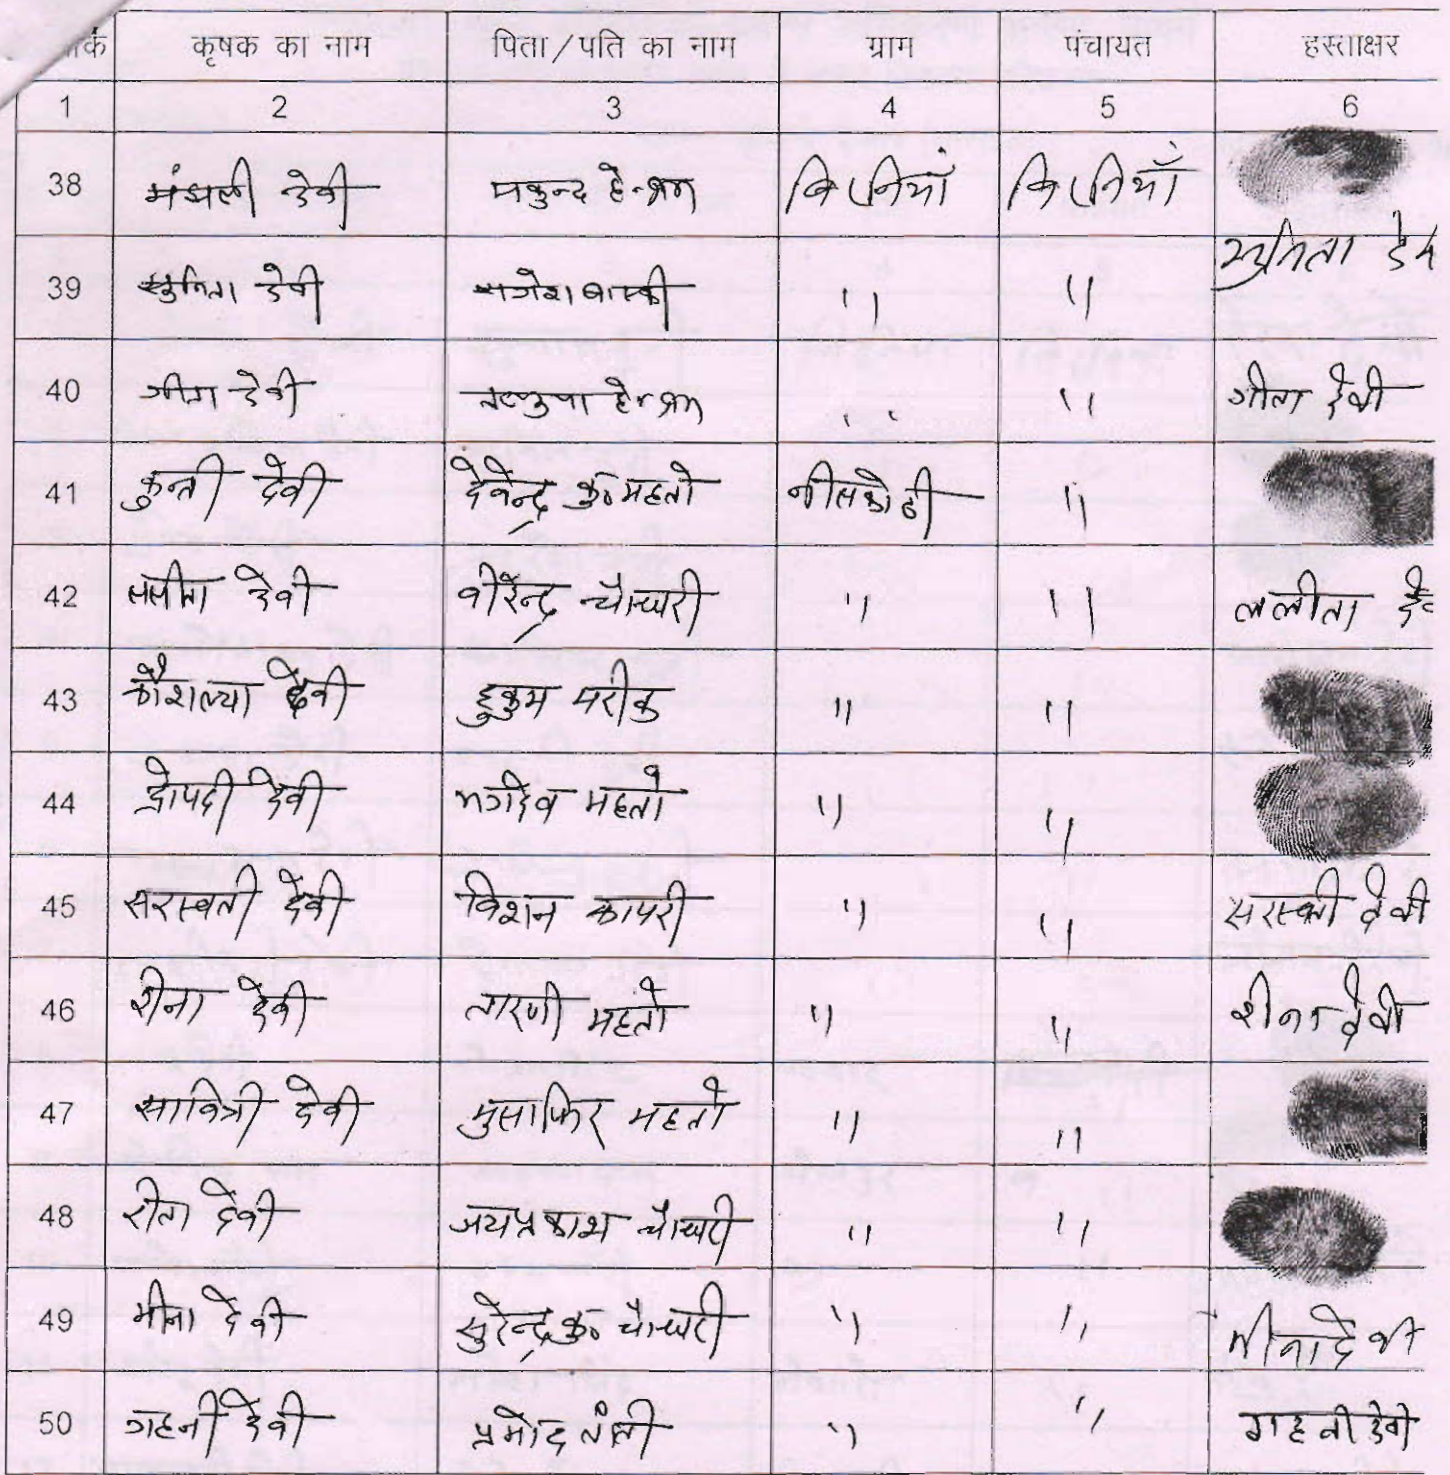 र्क कृषक का नाम पिता/पति का नाम ग्राम पंचायत हस्ताक्षर
1 2 3 4 5 6
38 मंझली देवी मकुन्द हेम्ब्रम
39 सुनिता देवी राजेश बास्की " " सुनिता
40 गीता देवी हेम्ब्रम " " गीता देवी
41 कुन्ती देवी देवेन्द्र कु० महतो नीलकोठी "
42 ललीता देवी वीरेन्द्र चौधरी " " ललीता
43 कौशल्या देवी हुकुम मरीक " "
44 द्रोपदी देवी महतो " "
45 सरस्वती देवी किशन कापरी " " सरस्वती देवी
46 रीना देवी तारणी महतो " " रीना देवी
47 सावित्री देवी मुसाफिर महतो " "
48 रीता देवी जयप्रकाश चौधरी " "
49 मीना देवी सुरेन्द्र कु० चौधरी " " मीना देवी
50 गहनी देवी प्रमोद तांती " " गहनी देवी